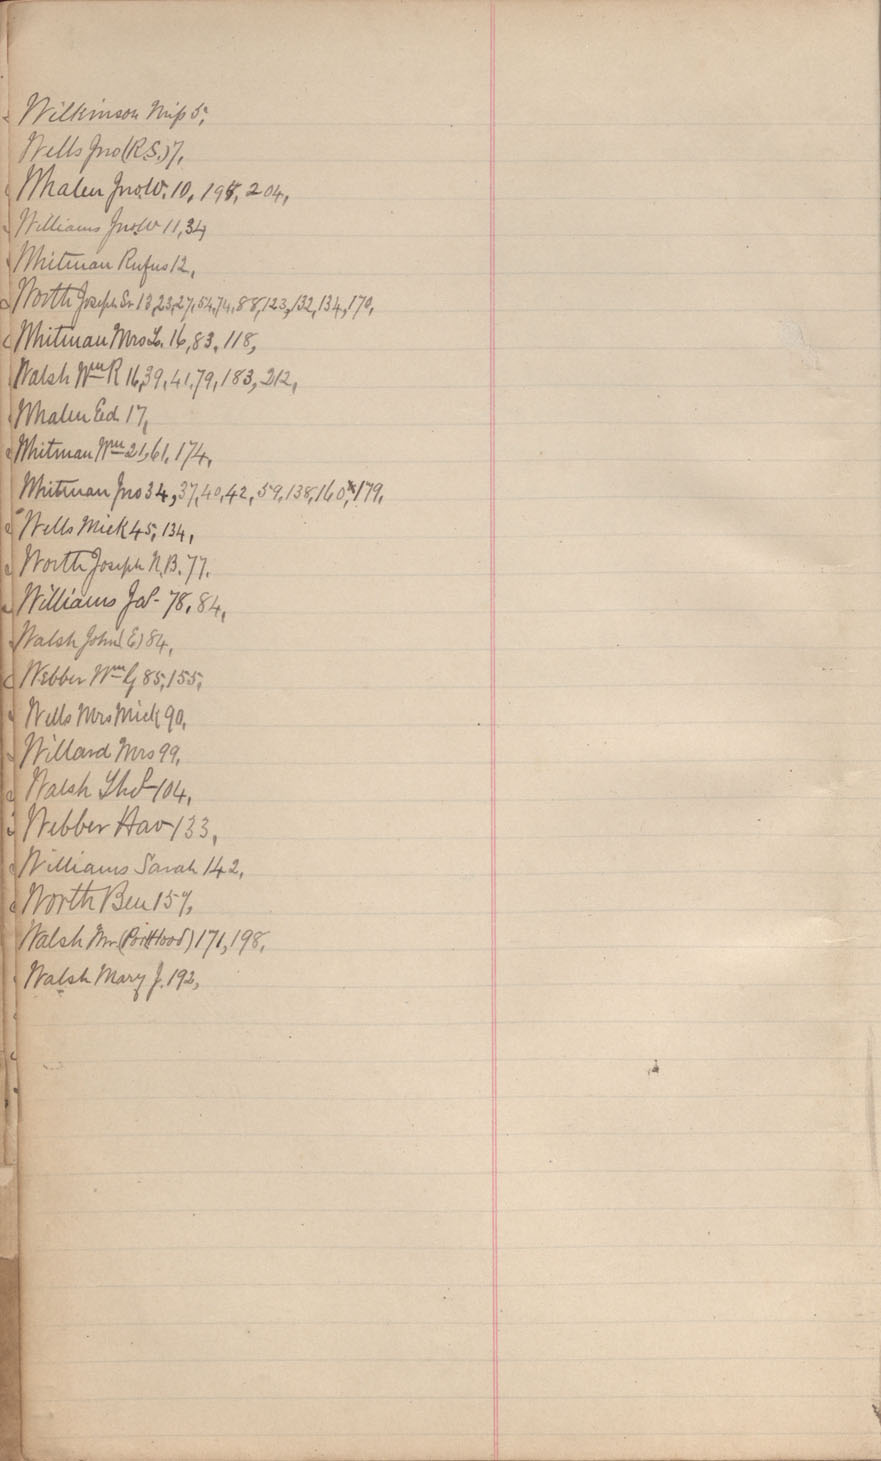 Wilkinson Miss 5,
Wells Jno (R.S.) 7,
Whalen Jno W. 10, 198, 204,
Williams Jno W 11, 34
Whitman Rufus 12,
Worth Joseph Sr 13, 23, 27, 54, 74, 88, 123, 132, 134, 170,
Whitman Mrs L. 16, 83, 118,
Walsh Wm R 16, 39, 41, 79, 183, 212,
Whalen Ed. 17,
Whitman Wm 21, 61, 174,
Whitman Jno 34, 37, 40, 42, 59, 138, 160, 179,
Wells Mick 45, 134,
Worth Joseph N.B. 77.
Williams Jas. 78, 84,
Walsh John (E) 84,
Webber Wm G 85, 155,
Wells Mrs Mick 90,
Willard Mrs 99,
Walsh Thos 104,
Webber Hav 133,
Williams Sarah 142,
Worth Ben 157,
Walsh Mr. (Port Hood) 171, 198,
Walsh Mary J. 192,